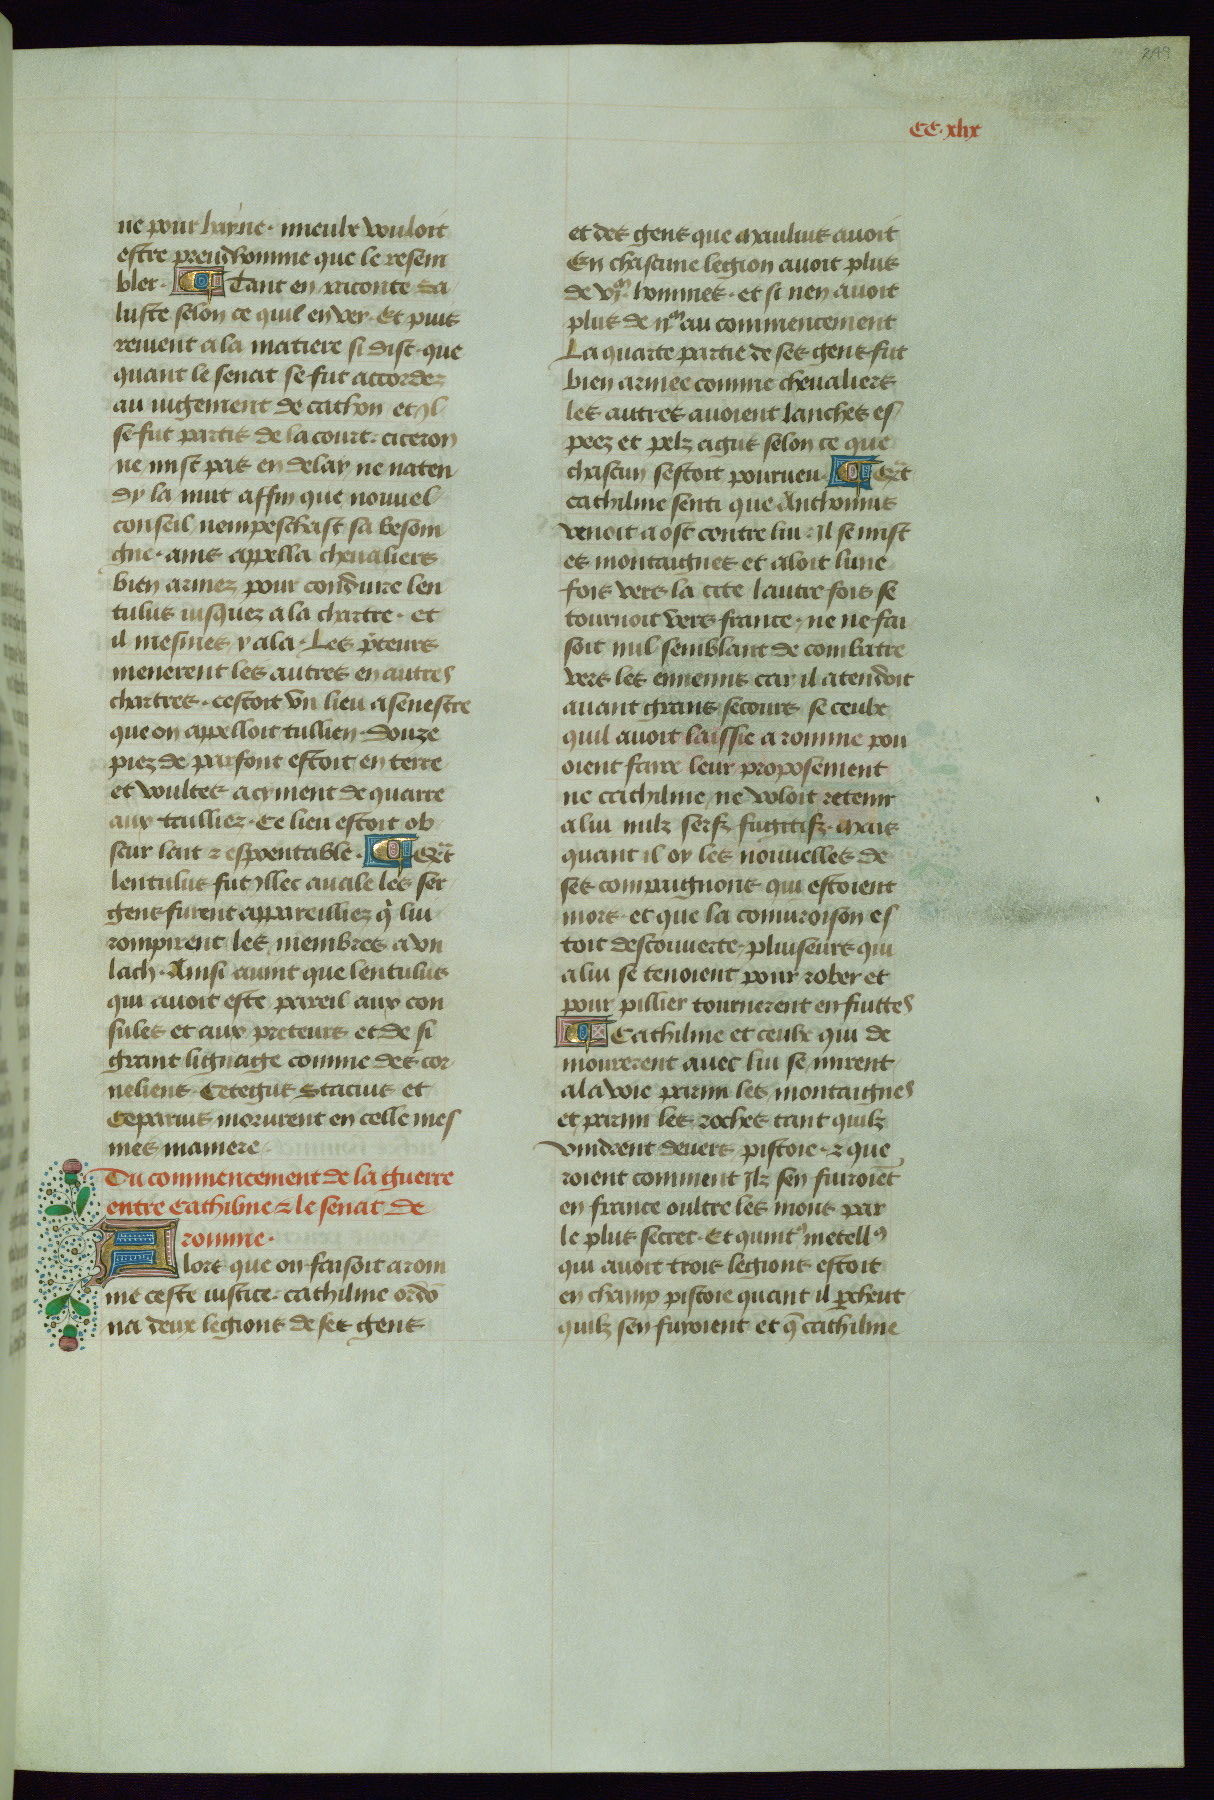 249
CC.xlix
ne pour hayne. mieulx vouloit
estre preudhomme que le resem
bler. Tant en raconte sa
luste selon ce quil en ver. Et puis
revient a la matiere si dist. que
quant le senat se fut accordez
au iugement de cathon et yl
se fut partis de la court. ciceron
ne mist pas en delay ne naten
dy la nuit affin que nouuel
conseil nempeschast sa besoin
gne. ains appella cheualiers
bien armez pour conduire len
tulus iusquez a la chartre. et
il mesmes y ala. Les p̄teurs
menerent les autres en autres
chartres. cestoit vn lieu a senestre
que on appelloit tullien. douze
piez de parfont estoit en terre
et voultes a cyment de quarre
aux taulliez. Ce lieu estoit ob
scur lait ⁊ espoentable. Qnt
lentulus fut yllec auale les ser
gens furent appareilliez q̇ lui
rompirent les membres a vn
lach. Ainsi auint que lentulus
qui auoit este pareil aux con
sules et aux preteurs et de si
grant lignaige comme des cor
neliens. Cetegus Stacius et
Ceparius morurent en celle mes
mes maniere.
Du commencement de la guerre
entre Cathiline ⁊ le senat de
romme.
Alors que on faisoit a rom
me ceste iustice. cathiline ordō
na deux legions de ses gens
et des gens que Manlius auoit
En chascune legion auoit plus
de vjm. hommes. et si nen auoit
plus de ijm au commencement
La quarte partie de ses gens fut
bien armee comme cheualiers
les autres auoient lanches es
peez et pelz agus selon ce que
chascun sestoit pourueu. Qnt
cathiline senti que Anthonius
venoit a ost contre lui. Il se mist
es montaignes et aloit lune
fois vers la cite lautre fois se
tournoit vers france. ne ne fai
soit nul semblant de combatre
vers les ennemis car il atendoit
auant grans secours se ceulx
quil auoit laissie a romme pou
oient faire leur proposement
ne cathiline ne voloit retenir
a lui nulz serfz fugitifz. Mais
quant il oy les nouuelles de
ses compaignons qui estoient
mors. et que la coniuroison es
toit descouuerte. pluiseurs qui
a lui se tenoient pour rober et
pour pillier tournerent en fuittes
Cathiline et ceulx qui de
mourerent auec lui se mirent
a la voie parmi les montaignes
et parmi les roches tant quilz
vindrent deuers pistoie. ⁊ que
roient comment ilz sen fuiroiēt
en france oultre les mons par
le plus secret. Et quintꝰ metellꝰ
qui auoit trois legions estoit
en champ pistoie quant il pcheut
quilz sen fuioient et q̄ cathiline